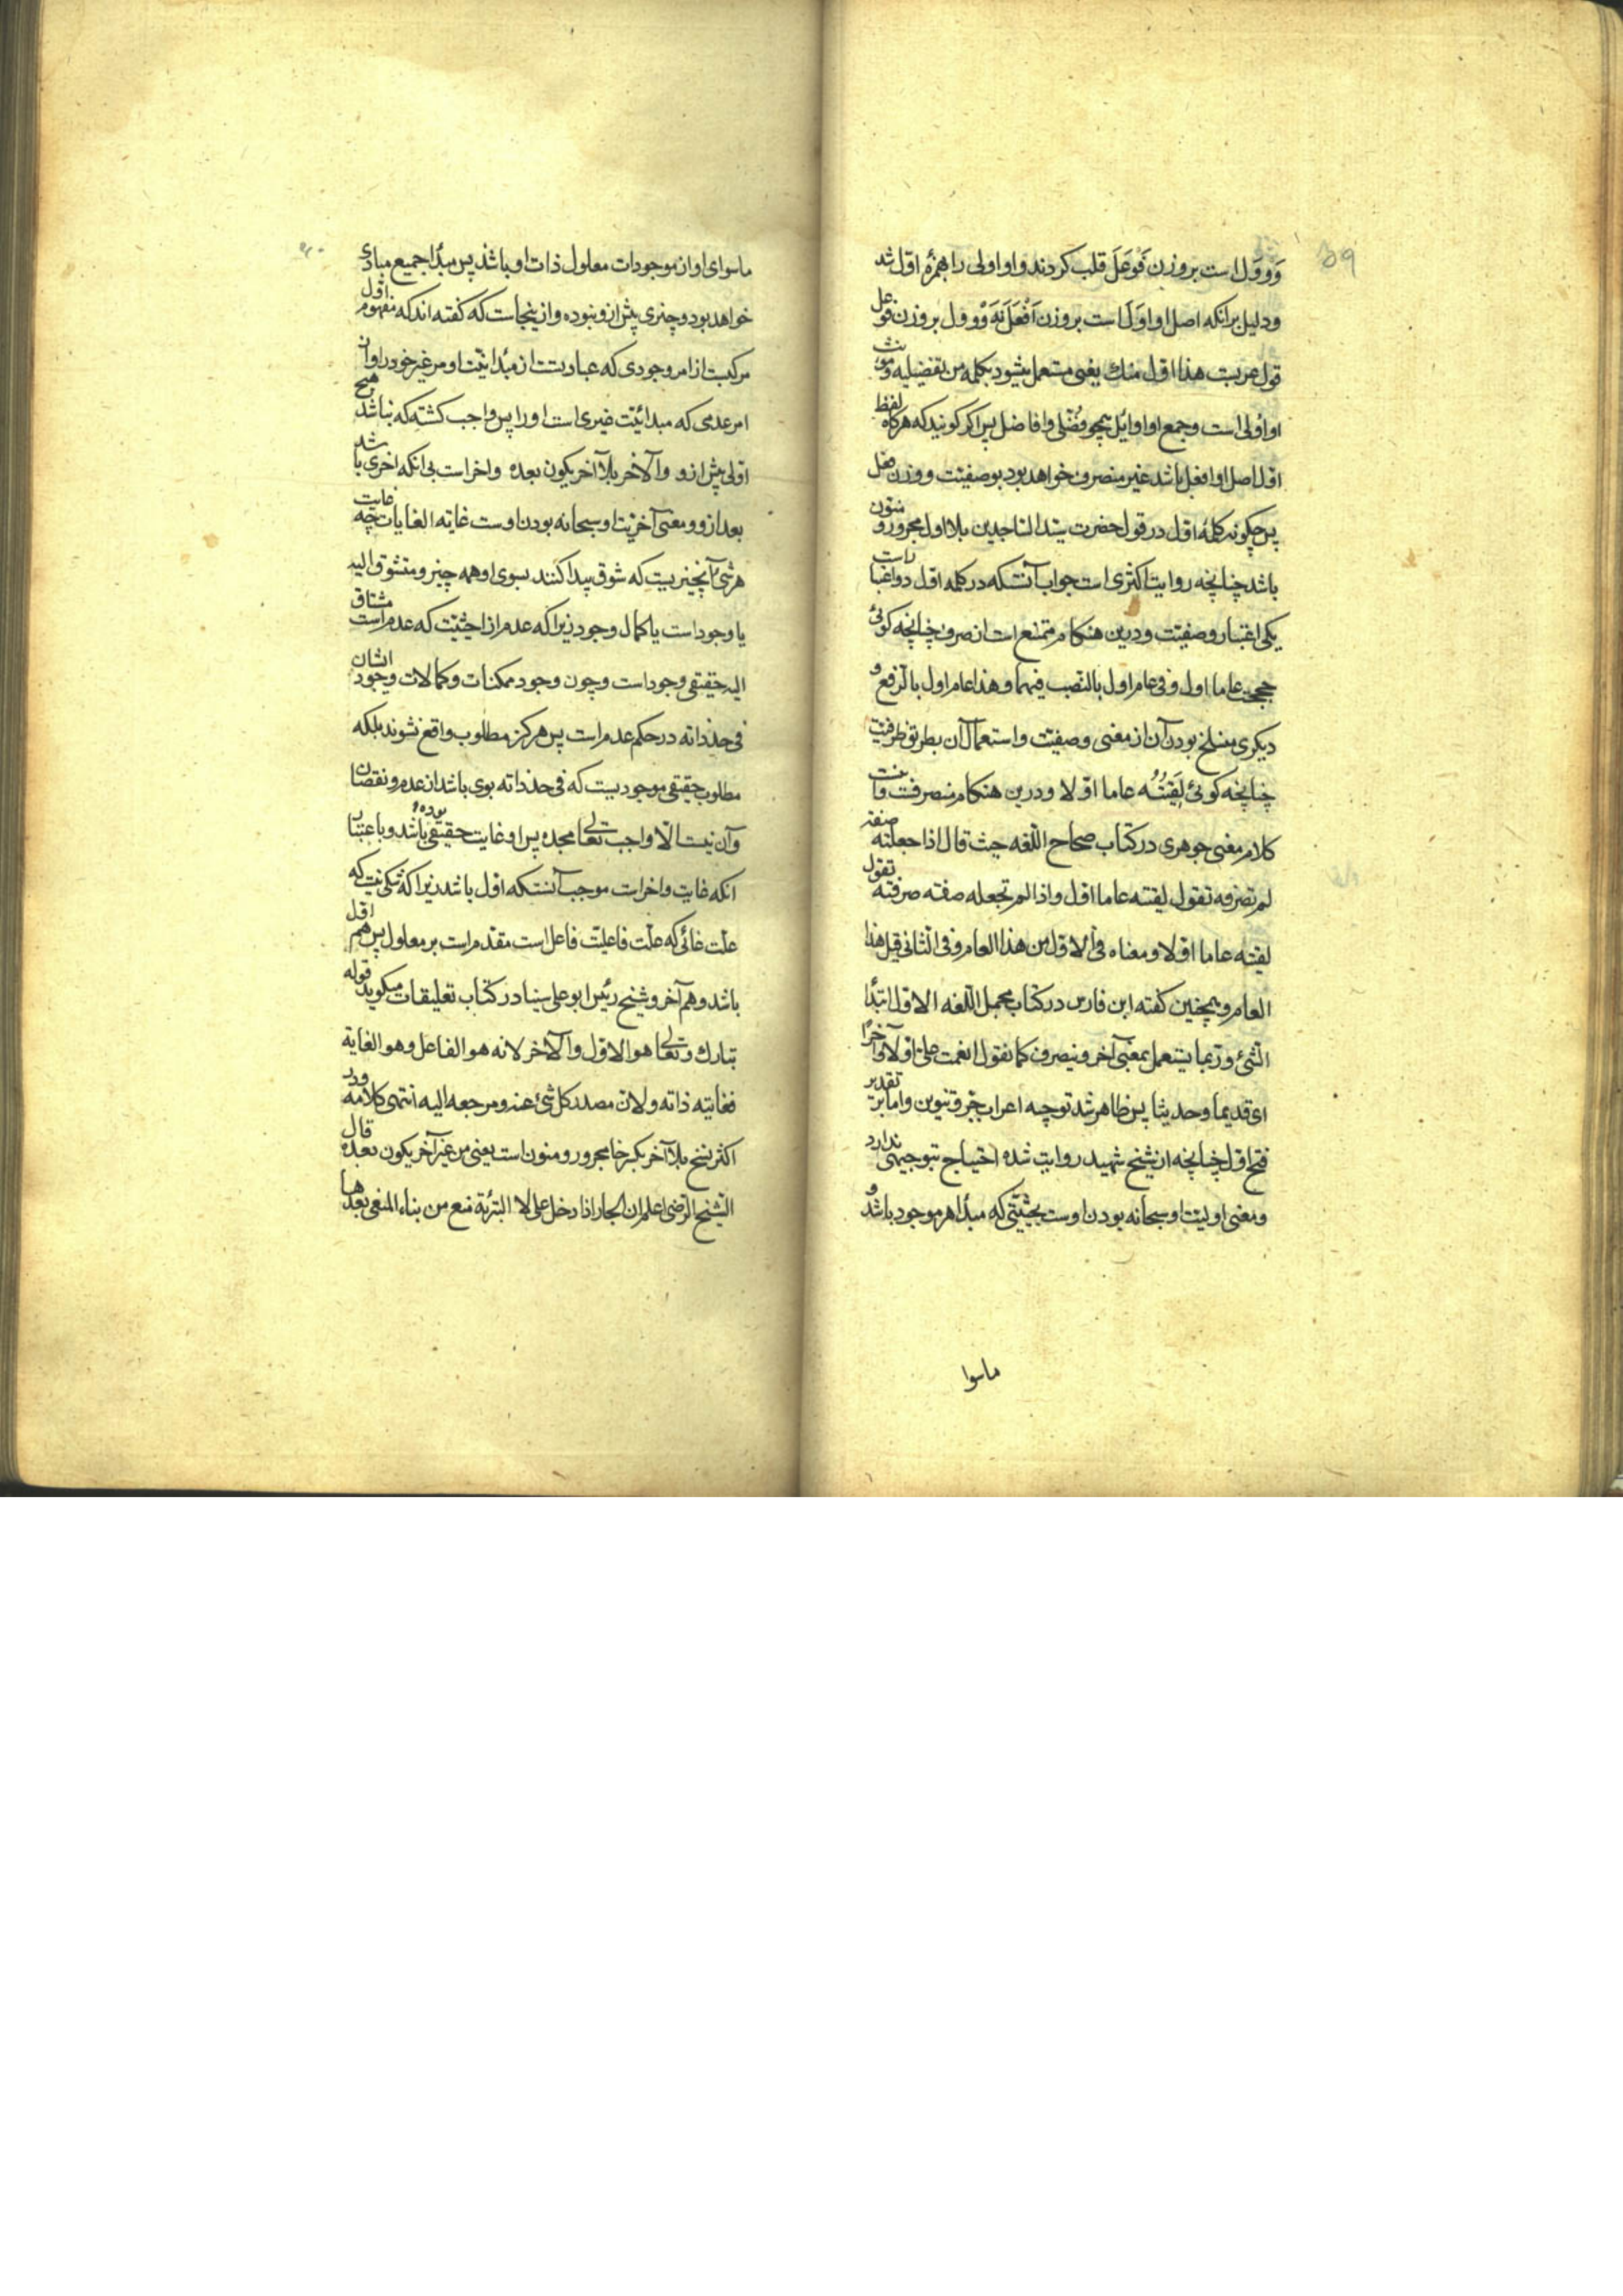 ۵۹
وَووَل است بر وزن فَوعَلَ قلب کردند و او اولی را همزهٔ اوّل شد
و دلیل برانکه اصل او اوَل است بر وزن اَفْعَلَ نَه وَوْوَل بر وزن فوعل
قول عربست هذا اوّل منك یعنی مستعمل میشود بکلمه من تفضیلیه و مونث
او اُولی است و جمع او اوایل همچو فُضلی و افاضل پس اکر کویند که هرکاه لفظ
اوّل اصل او افعل باشد غیر منصرف خواهد بود بوصفیّت و وزن فعل
پس چکونه کلمهٔ اوّل در قول حضرت سیّد السّاجدین بلا اول مجرور و منوّن
باشد چنانچه روایت اکثری است جواب آنستکه در کلمه اوّل دو اعتبار است
یکی اعتبار وصفیّت و درین هنکام ممتنع است از صرف چنانچه کوئی
حججت عاما اول و فی عام اول بالنصب فیهما و هذا عام اول بالرّفع و
دیکری منسلخ بودن آن از معنی وصفیّت و استعمال آن بطریق ظرفیّت
چنانچه کوئی لَقِیتُه عاما اوّلا و درین هنکام منصرفست و اینست
کلام معنی جوهری در کتاب صحاح اللّغه حیث قال اذا جعلته صفة
لم تصرفه تقول لقیته عاما اوّل و اذا لم تجعله صفه صرفته تقول
لقیته عاما اوّلا و معناه فی الاوّل من هذا العام و فی الثانی قبل هذا
العام و همچنین کفته ابن فارس در کتاب مجمل اللّغه الاوّل ابتدأ
الشّئ و ربّما یستعمل بمعنی آخر و ینصرف کما تقول انعمت علیّ اوّلا و آخرًا
ای قدیما و حدیثا پس ظاهر شد توجیه اعراب جرّ و تنوین و اما بر تقدیر
فتح اوّل چنانچه از شیخ شهید روایت شده احتیاج بتوجیهی ندارد
و معنی اولیّت او سبحانه بودن اوست بحیثیّتی که مبدأ هر موجود باشد و
ماسوا
ماسوای او از موجودات معلول ذات او باشد پس مبدأ جمیع مبادی
خواهد بود و چیزی پیش از و نبوده و از ینجاست که کفته اند که مفهوم اوّل
مرکبست از امر وجودی که عبارتست از مبدائیّت او مر غیر خود را و از
امر عدمی که مبدائیّت غیری است او را پس واجب کشته که نباشد هیچ
اوّلی پیش از و و آلاخر بلا آخر یکون بعده و اخر است بی انکه اخری باشد
بعد از و و معنی آخریّت او سبحانه بودن اوست غایه الغایات چه غایت
هر شئ آنچیزیست که شوق پیدا کنند بسوی او همه چیز و متشوّق الیه
یا وجود است یا کمال وجود زیرا که عدم از احیثیّت که عدم است مشتاق
الیه حقیقی وجود است و چون وجود ممکنات و کمالات وجود ایشان
فی حدّ ذاته در حکم عدم است پس هرکز مطلوب واقع نشوند بلکه
مطلوب حقیقی موجودیست که فی حدّ ذاته بری باشد از عدم و نقصان
و آن نیست الّا واجب تعالی مجده پس او غایت حقیقی بوده باشد و باعتبار
انکه غایت و اخر است موجب آنستکه اوّل باشد زیرا که شکی نیست که
علّت غائی که علّت فاعلیّت فاعل است مقدّم است بر معلول پس هم اوّل
باشد و هم آخر و شیخ رئیس ابو علی سینا در کتاب تعلیقات میکوید قوله
تبارك و تعالی هو الاوّل و آلاخر لانه هو الفاعل و هو الغایة
فغایته ذاته و لانّ مصدر کل شئ عنه و مرجعه الیه انتهی کلامه و در
اکثر نسخ بلا آخر بکسر خا مجرور و منون است یعنی من غیر آخر یکون بعده قال
الشّیخ الرّضی اعلم ان الجار اذا دخل علی لا التبرئة منع من بناء المنفی بعدها